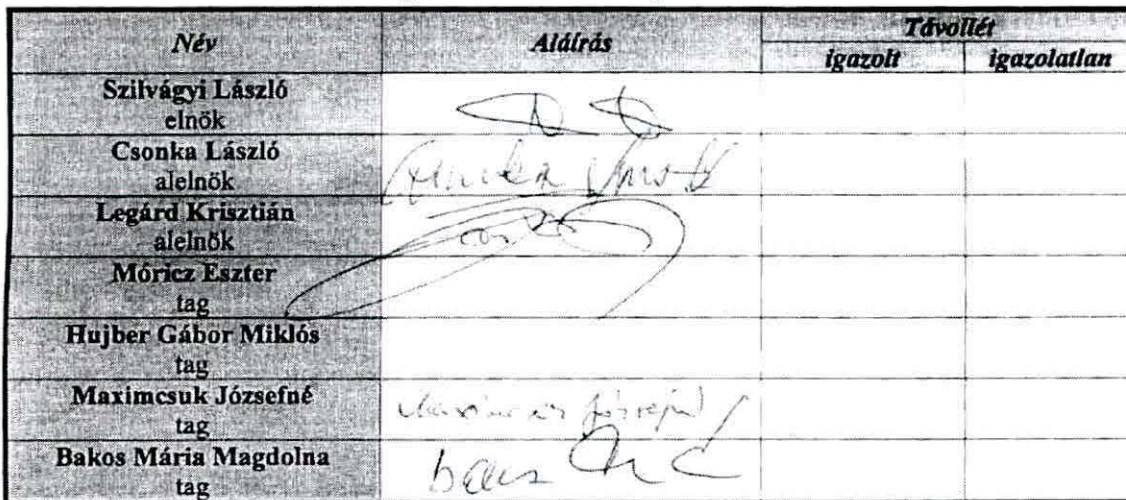 Név Aláírás Távollét
igazolt igazolatlan
Szilvágyi László
elnök
Csonka László
alelnök
Legárd Krisztián
alelnök
Móricz Eszter
tag
Hujber Gábor Miklós
tag
Maximcsuk Józsefné
tag
Bakos Mária Magdolna
tag